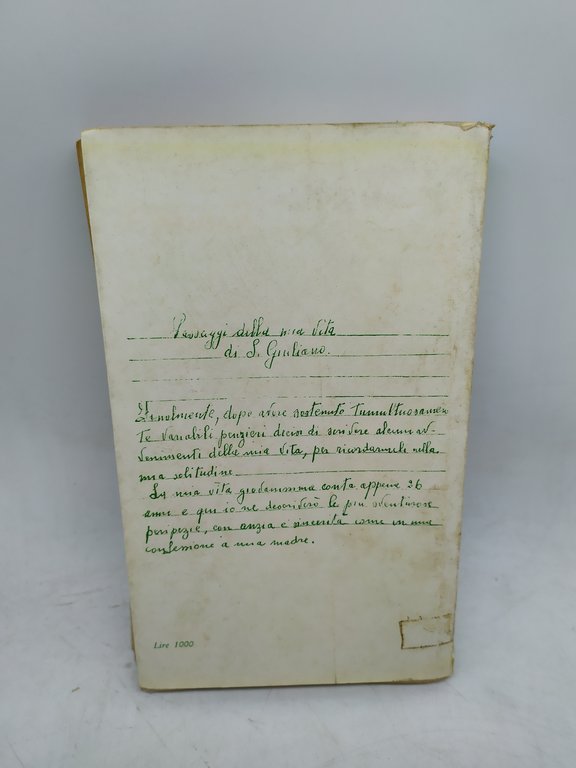 Passaggi della mia vita
di S. Giuliano.
Finalmente, dopo avere sostenuto tumultuosamen-
te variabili penzieri decisi di scrivere alcuni av-
venimenti della mia vita, per ricordarmeli nella
mia solitudine
La mia vita giovanissima conta appena 26
anni e qui io ne descriverò le più sventurose
peripezie, con anzia e sincerità come in una
confessione a una madre.
Lire 1000